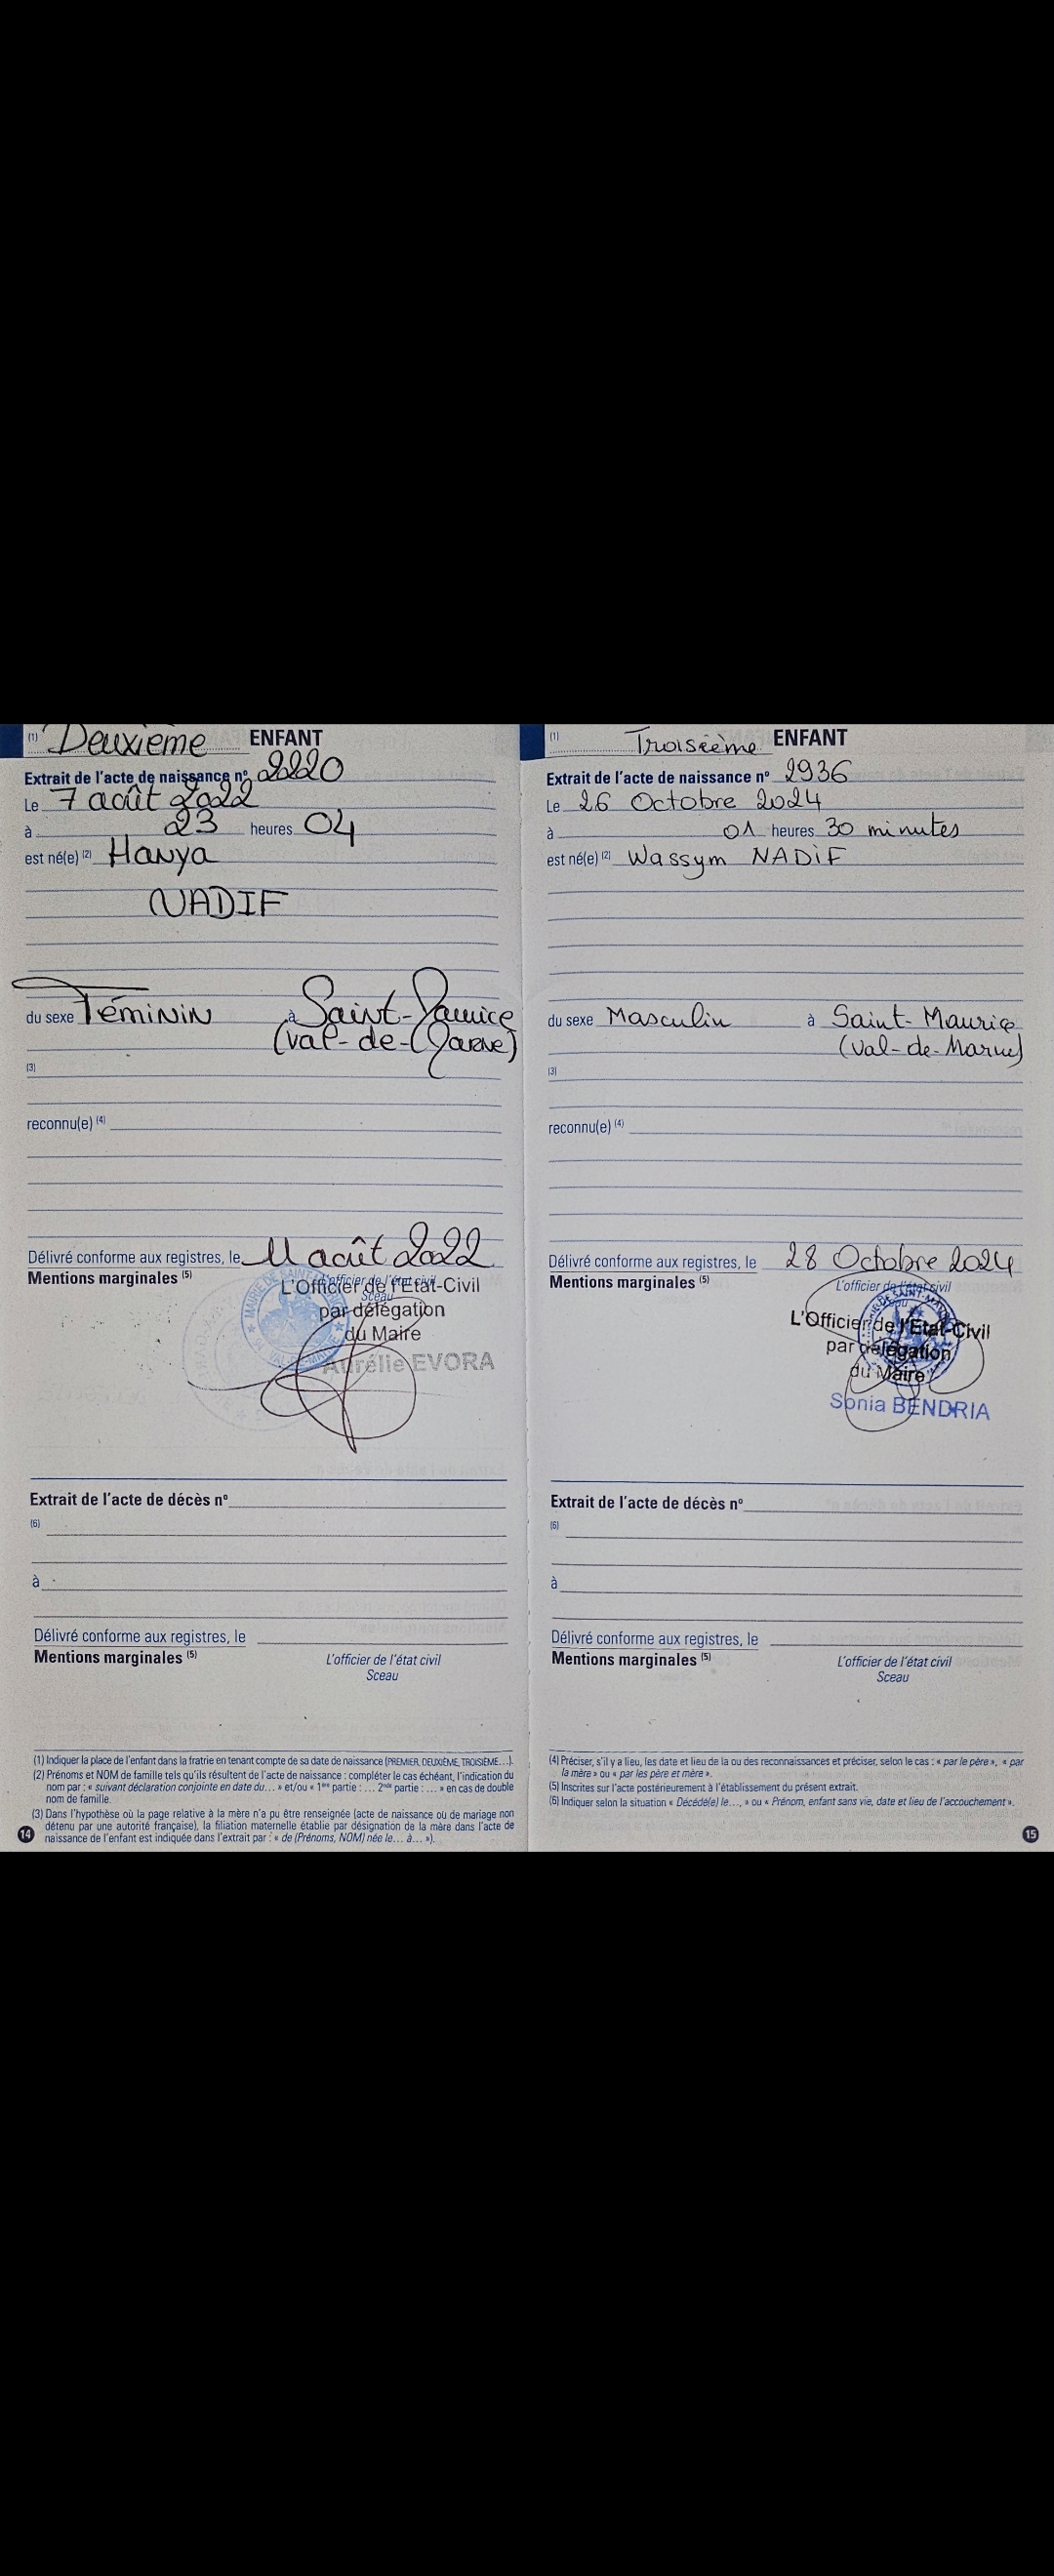 (1) Deuxième ENFANT
Extrait de l'acte de naissance nº 2220
Le 7 août 2022
à 23 heures 04
est né(e) (2) Hanya
NADIF
du sexe Féminin à Saint-Maurice
(Val-de-Marne)
(3)
reconnu(e) (4)
Délivré conforme aux registres, le 11 août 2022
Mentions marginales (5)
L'officier de l'état civil
Sceau
L'Officier de l'Etat-Civil
par délégation
du Maire
Aurélie EVORA
Extrait de l'acte de décès nº
(6)
à
Délivré conforme aux registres, le
Mentions marginales (5)
L'officier de l'état civil
Sceau
(1) Indiquer la place de l'enfant dans la fratrie en tenant compte de sa date de naissance (PREMIER, DEUXIÈME, TROISIÈME…).
(2) Prénoms et NOM de famille tels qu'ils résultent de l'acte de naissance : compléter le cas échéant, l'indication du
nom par : « suivant déclaration conjointe en date du… » et/ou « 1ère partie : … 2nde partie : … » en cas de double
nom de famille.
(3) Dans l'hypothèse où la page relative à la mère n'a pu être renseignée (acte de naissance ou de mariage non
détenu par une autorité française), la filiation maternelle établie par désignation de la mère dans l'acte de
naissance de l'enfant est indiquée dans l'extrait par : « de (Prénoms, NOM) née le… à… »).
14
(1) Troisième ENFANT
Extrait de l'acte de naissance nº 2936
Le 26 Octobre 2024
à 01 heures 30 minutes
est né(e) (2) Wassym NADiF
du sexe Masculin à Saint-Maurice
(Val-de-Marne)
(3)
reconnu(e) (4)
Délivré conforme aux registres, le 28 Octobre 2024
Mentions marginales (5)
L'officier de l'état civil
L'Officier de l'Etat-Civil
par délégation
du Maire
Sonia BENDRIA
Extrait de l'acte de décès nº
(6)
à
Délivré conforme aux registres, le
Mentions marginales (5)
L'officier de l'état civil
Sceau
(4) Préciser, s'il y a lieu, les date et lieu de la ou des reconnaissances et préciser, selon le cas : « par le père », « par
la mère » ou « par les père et mère ».
(5) Inscrites sur l'acte postérieurement à l'établissement du présent extrait.
(6) Indiquer selon la situation « Décédé(e) le…, » ou « Prénom, enfant sans vie, date et lieu de l'accouchement ».
15